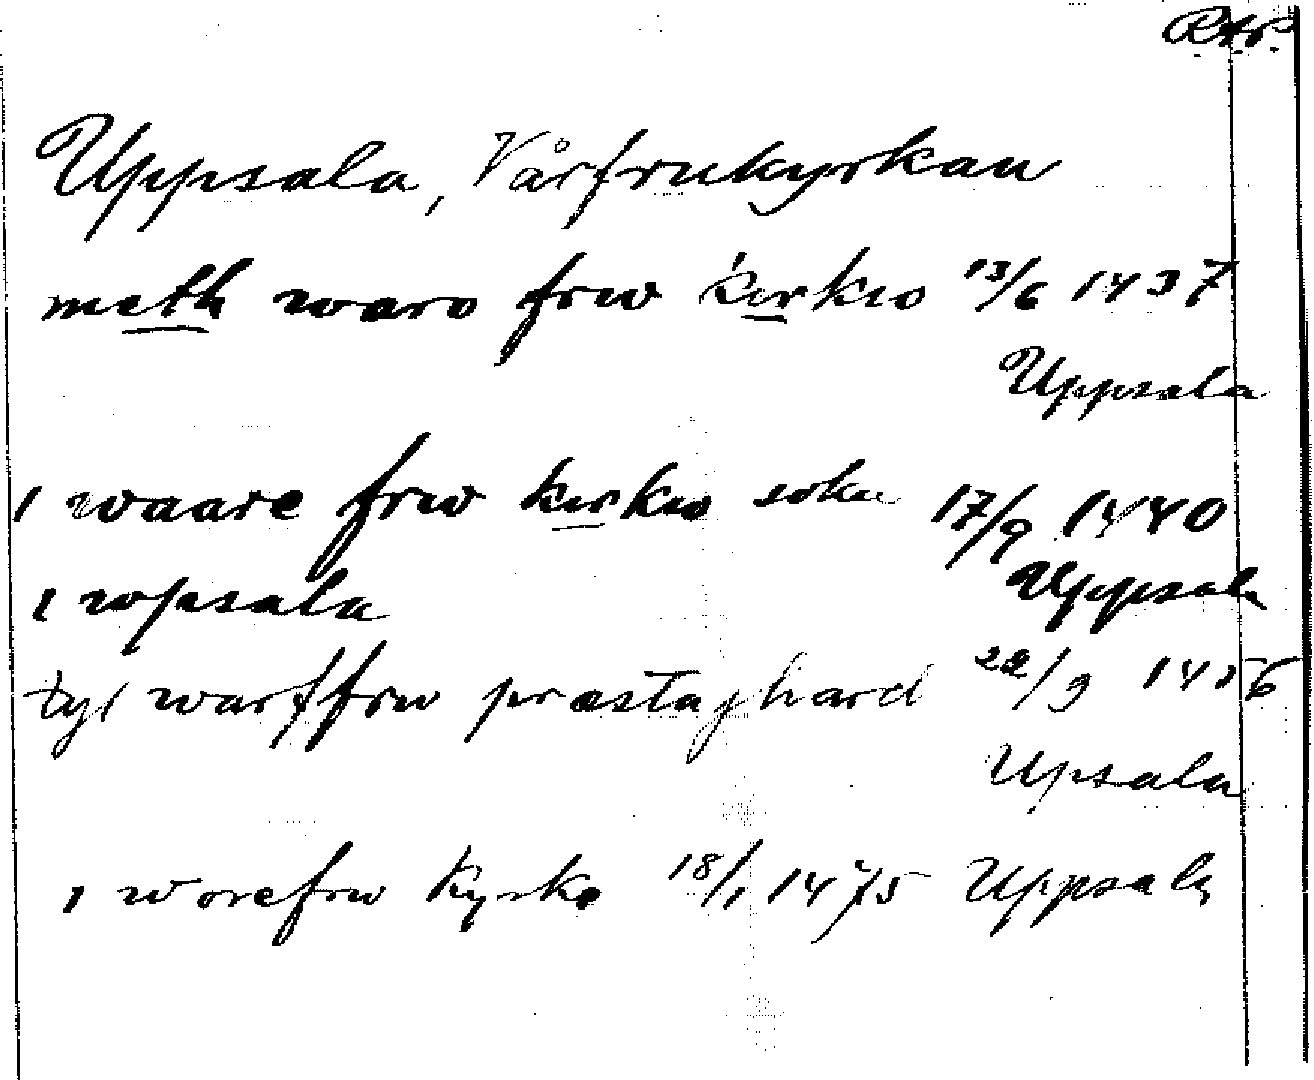 Uppsala, Vårfrukyrkan
meth waro frw kirkio 13/6 1437
Uppsala
i waare frw kirkio sokn 17/9 1440
i wpsala Uppsala
tyl warffrw præstaghard 22/9 1456
Upsala
i worefrw kyrke 18/1 1475 Uppsala